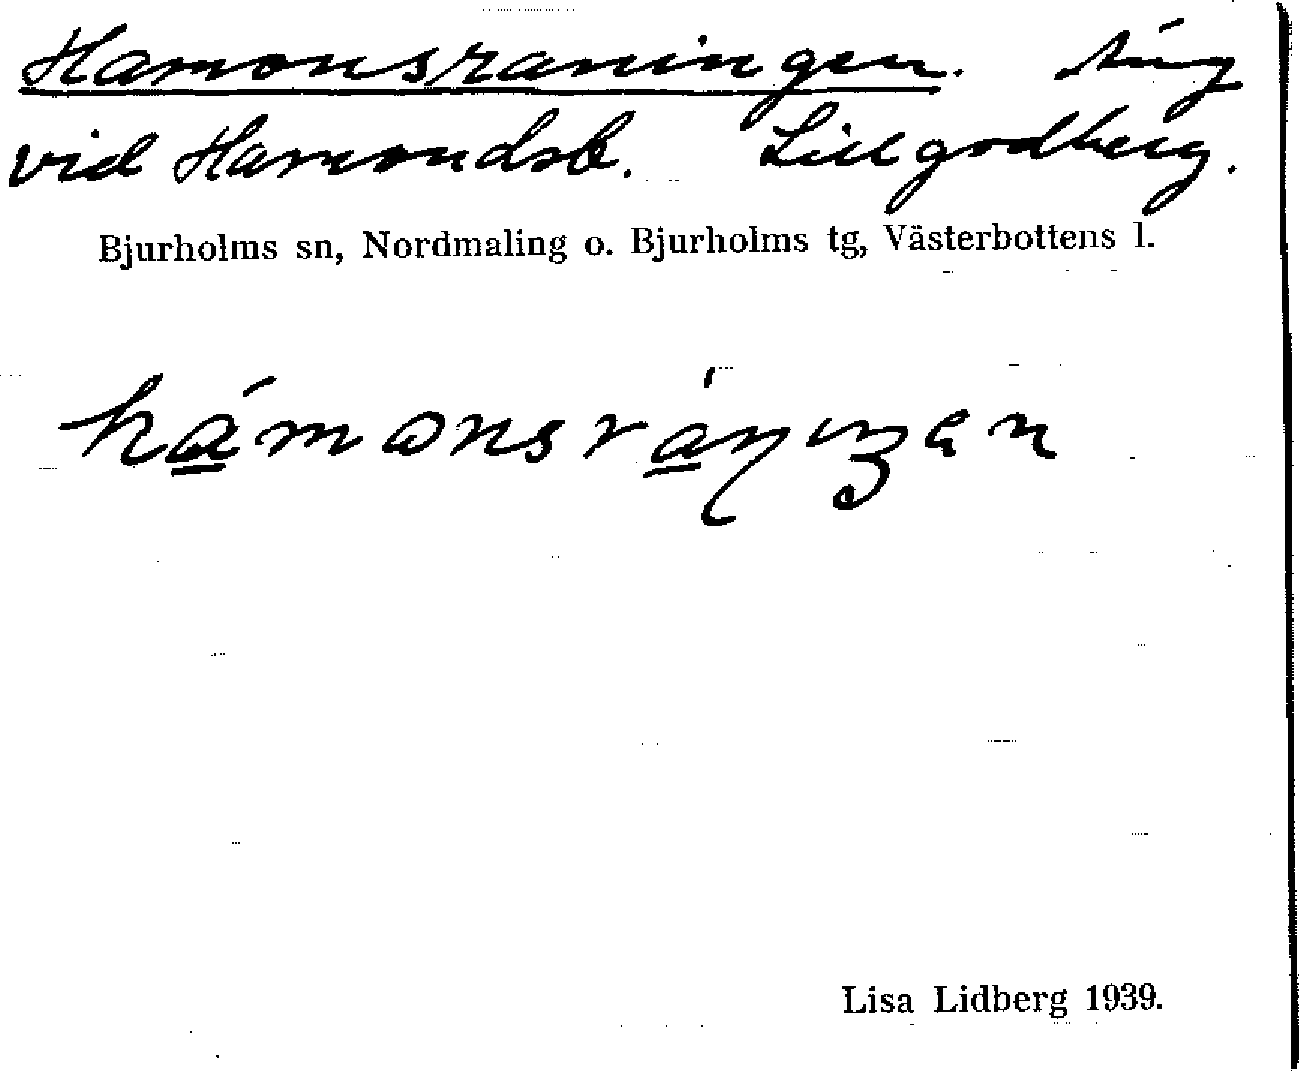 Hamonsraningen. Äng
vid Hamondsb. Lillgodberg.
Bjurholms sn, Nordmaling o. Bjurholms tg, Västerbottens l.
Lisa Lidberg 1939.